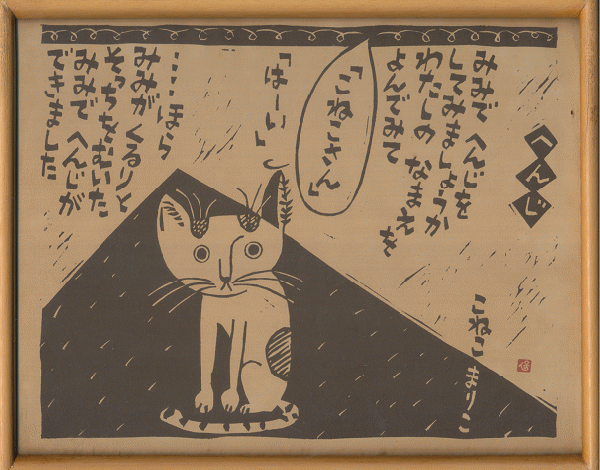 へんじ
こねこまりこ
みみで へんじを
してみましょうか
わたしの なまえを
よんでみて
「こねこさん」
「はーい」
……ほら
みみが くるりと
そっちをむいた
みみで へんじが
できました